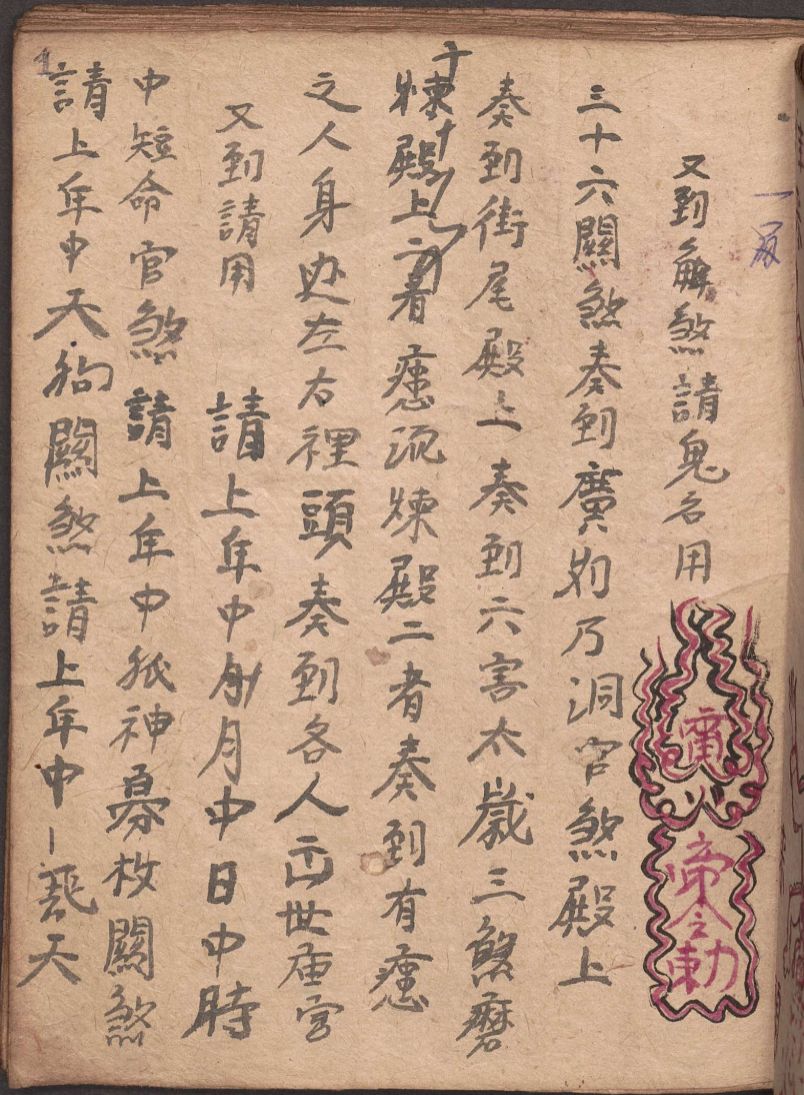 又到解煞請鬼名用
三十六關煞奏到廣州乃洞宮煞殿上
奏到街尾殿上奏到六害太歲三煞磨
煉殿上二者瘟流煉殿二者奏到有瘟
之人身边左右裡頭奏到各人正世宮
又到請用 請上年中月中日中時
中短命官煞請上年中神關煞
請上年中天狗關煞請上年中天
勅令